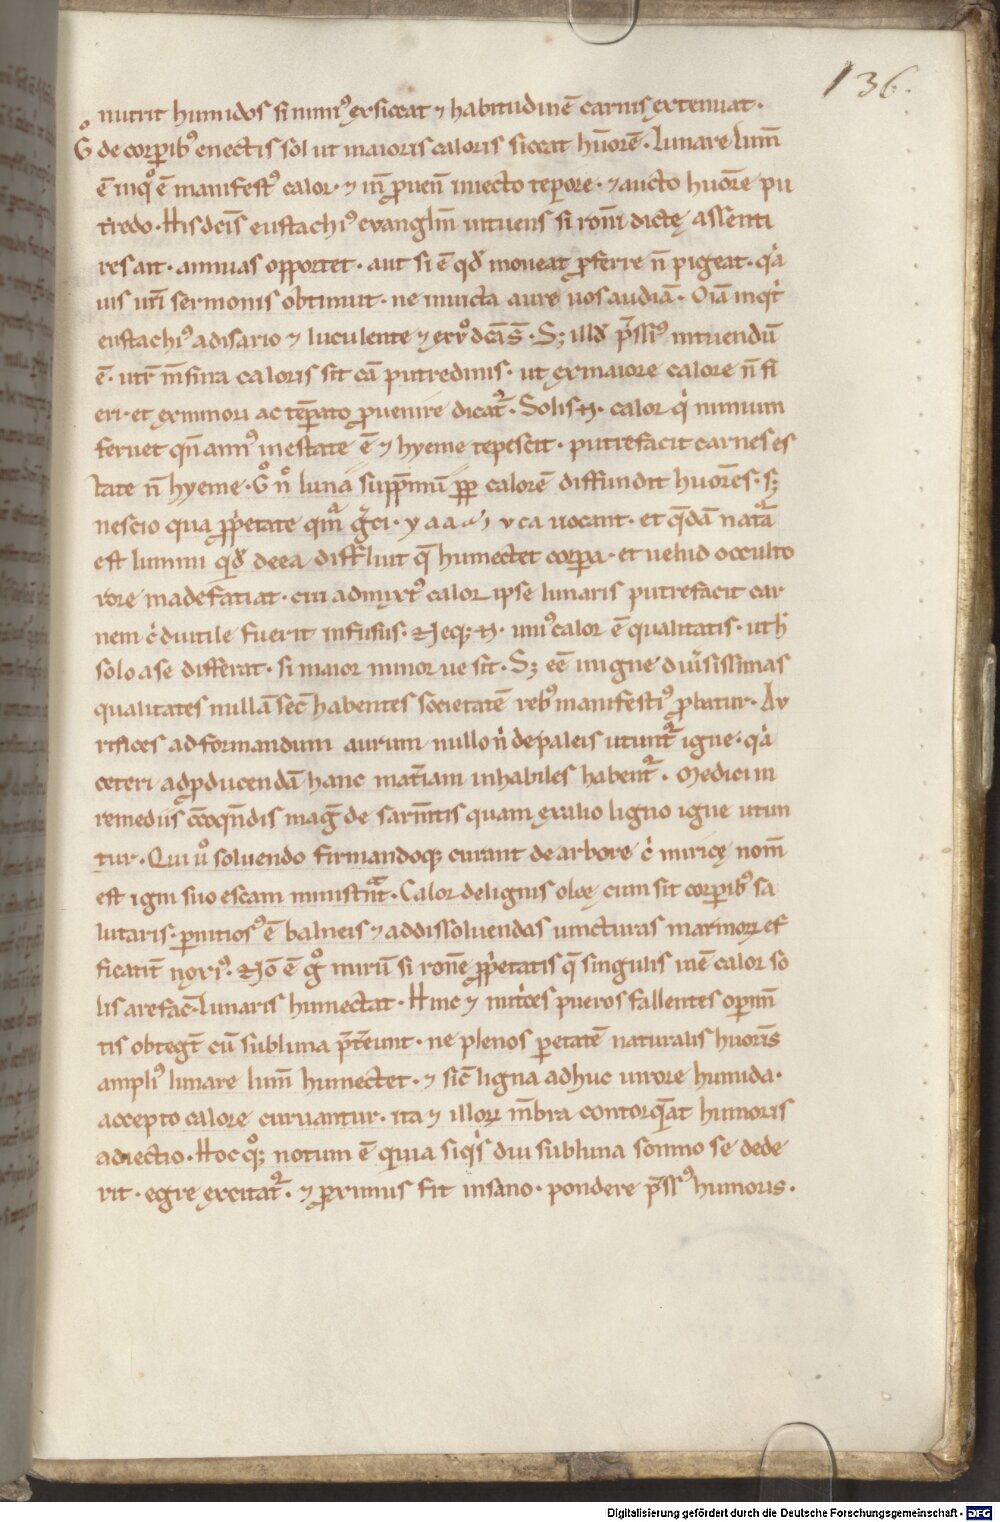 136.
nutrit humidos si nimi᾿ exsiccat ⁊ habitudinē carnis extenuat·
G̊ de corꝑib᾿ enectis sol ut maioris caloris siccat hūorē· Lunare lum̄
ē inqͦ ē manifest᾿ calor· ⁊ in̄ ꝓuen̄ inuecto tepore· ⁊ aucto huorē pu
tredo· His dc̄is eustachi᾿ evangl̄m intuens si ron̄i dictę assenti
res ait· annuas opportet· aut si ē qd̄ moueat ꝓferre n̄ pigeat· qͣ
uis ur̄i sermonis obtinuit· ne inuicta aure uos audiā· Oīa inqͥt
eustachi᾿ adisario ⁊ luculente ⁊ exuͦ dcā s̄· Sꝫ illd̄ p̄ssi᾿ intuendū
ē· utr̄ m̄sura caloris sit cā putredinis· ut ex maiore calore n̄ fi
eri· et ex minori ac teꝑato ꝓuenire dicat᷑· Solis .n̄. calor qͥ nimium
feruet qn̄ ann᾿ in estate ē ⁊ hyeme tepescit· putrefacit carnes es
tate n̄ hyeme· G̊ nͦ luna supp̄mū ꝑꝑ calorē diffundit huorēs· sꝫ
nescio qua ꝓp̄etate qm̄ gͣci· vocant· et qͣdā natͣā
est lumini qd̄ de ea diffluit q̄ humectet corꝑa· et uelud occulto
rore madefatiat· cui admixt᾿ calor ipse lunaris putrefacit car
nem cͥ diutile fuerit infusus· Neqꝫ .n̄. uni᾿ calor ē qualitatis· ut h̓
solo a se differat· si maior minor ue sit· Sꝫ eē in igne diu̓sissimas
qualitates nullā sec̄ habentes societatē reb᾿ manifesti᾿ ꝓbatur· Au
rifices ad formandum aurum nullo n̓ de paleis utunt᷑ igne· qͣ
ceteri ad ꝓducendā hanc mat̄iam inhabiles habent᷑· Medici in
remediis ccoqn̄dis mag̓ de sarm̄tis quam ex alio ligno igne utun
tur· Qui uͦ soluendo firmandoqꝫ curant de arbore cͥ miricę nom̄
est igni suo escam ministrāt· Calor de lignis oleę cum sit corꝑib᾿ sa
lutaris· ꝑnitios᾿ ē balneis ⁊ ad dissoluendas uincturas marmorꝝ ef
ficatit̄ noxi᾿· Nō ē gͦ mirū si ronē ꝓp̄etatis q̄ singulis inē calor so
lis arefac̄· lunaris humectat· Hinc ⁊ nutͥces pueros fallentes operim̄
tis obtegt̄ cū sub luna p̄t̄eunt· ne plenos ꝑ etatē naturalis huoris
ampli᾿ lunare lum̄ humectet· ⁊ sic̄ ligna adhuc uirore humida·
accepto calore curuantur· ita ⁊ illorꝝ m̄bra contorqᷓat humoris
adiectio· Hoc qͦꝫ notum ē quia siqͥs diu sub luna somno se dede
rit· egre excitat᷑· ⁊ ꝓximus fit insano· pondere p̄ss᾿ humoris·
Digitalisierung gefördert durch die Deutsche Forschungsgemeinschaft - DFG